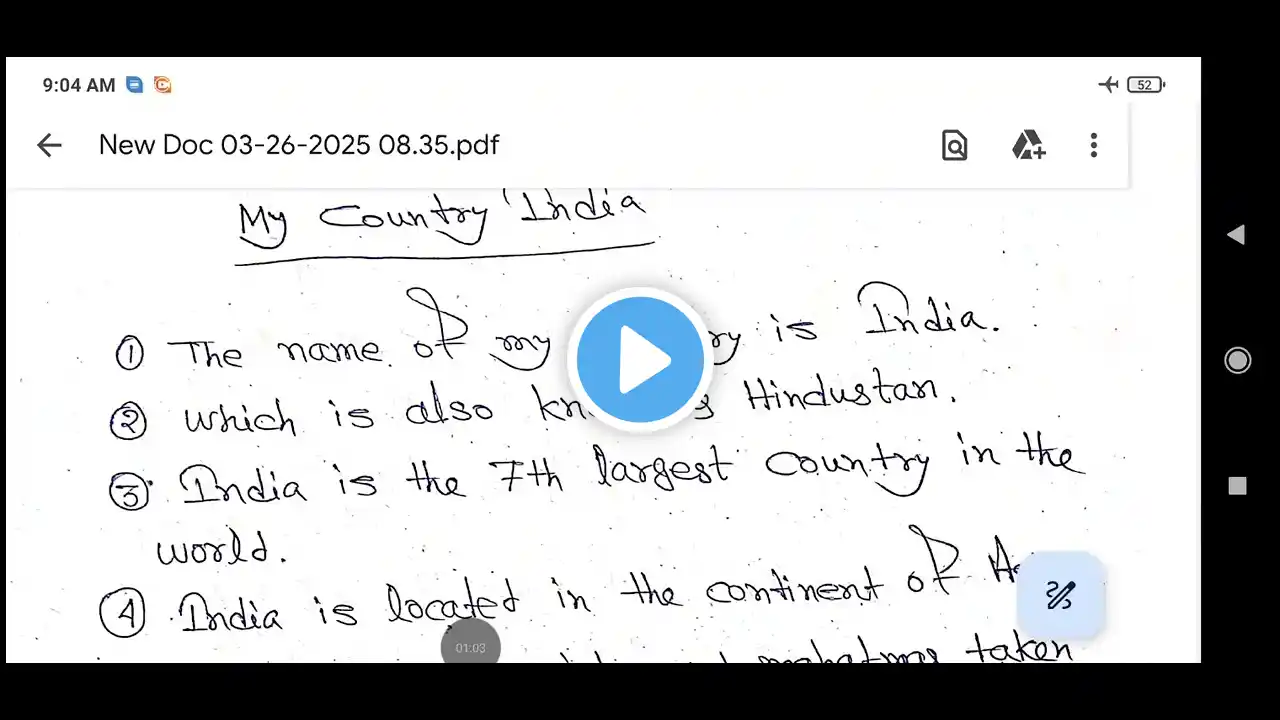 9:04 AM
52
New Doc 03-26-2025 08.35.pdf
My Country India
① The name of my is India.
② which is also Hindustan.
③ India is the 7th largest country in the
world.
④ India is located in the continent of
01:03
taken